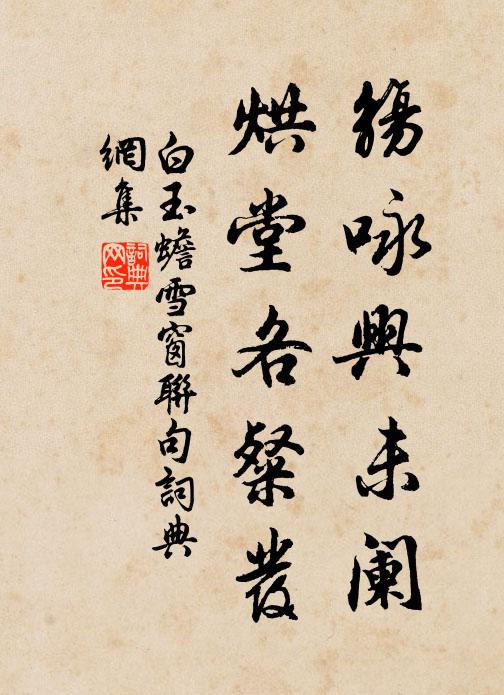 觴咏興未阑
烘堂各粲發
白玉蟾雪窗聯句詞典
網集
詞典
网印